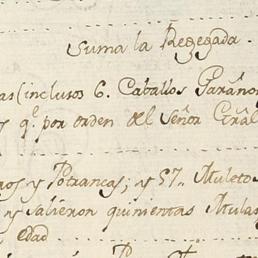 Suma la Regegada
as (inclusos 6. Caballos Garaño
s q.e por orden del Señor Gral
ros y Potrancas; y 57.. Muleto
y salieron quinientas Mulas
edad